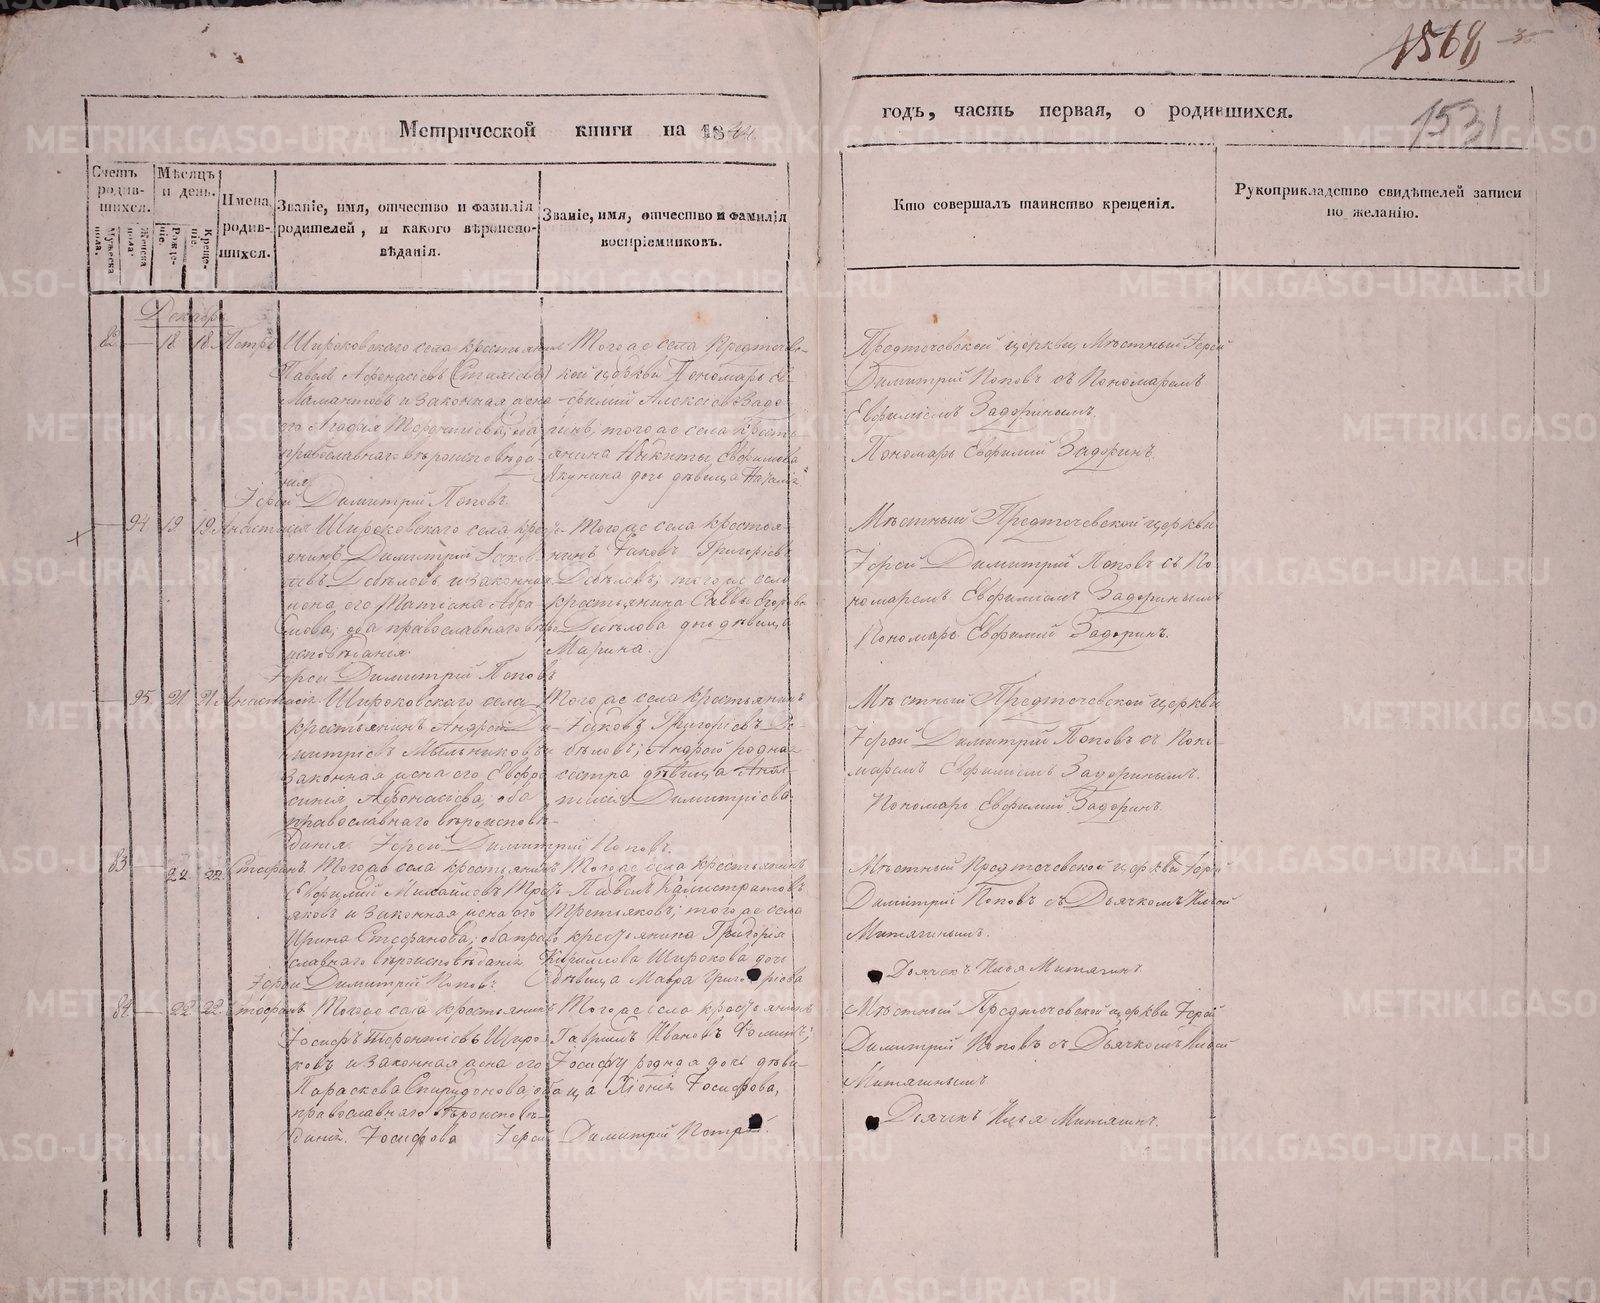 1568
1531
Метрической книги на 1844
годъ, часть первая, о родившихся.
Счетъ родившихся.
Мужеска пола.
Женска пола.
Мѣсяцъ и день.
Рожденіе.
Крещеніе.
Имена родившихся.
Званіе, имя, отчество и фамилія
родителей, и какого вѣроиспо-
вѣданія.
Званіе, имя, отчество и фамилія
воспріемниковъ.
Кто совершалъ таинство крещенія.
Рукоприкладство свидѣтелей записи
по желанію.
Декабрь
82 — 18 18 Петръ
Широковскаго села крестьянинъ
Павелъ Афонасіевъ
Мамантовъ и законная жена
его Агафія Терентіева, оба
православнаго вѣроисповѣда-
нія.
Іерей Димитрій Поповъ
Тогоже села Предтечевс-
кой церкви Пономарь Ев-
фимій Алексіевъ Задо-
ринъ; тогоже села кресть-
янина Никиты Евфимова
Якунина дочь дѣвица
Предтечевской церкви Мѣстный Іерей
Димитрій Поповъ съ Пономаремъ
Евфиміемъ Задоринымъ.
Пономарь Евфимій Задоринъ.
— 94 19 19 Анастасія
Широковскаго села кресть-
янинъ Димитрій
Девѣловъ и законная
жена его Татіана
оба православнаго вѣро-
исповѣданія.
Іерей Димитрій Поповъ
Тогоже села крестья-
нинъ Іаковъ Григоріевъ
Девѣловъ; тогоже села
крестьянина Саввы Егорова
Девѣлова дочь дѣвица
Марина.
Мѣстный Предтечевской церкви
Іерей Димитрій Поповъ съ По-
номаремъ Евфиміемъ Задоринымъ
Пономарь Евфимій Задоринъ.
— 95 21 21 Анастасія
Широковскаго села
крестьянинъ Андрей Ди-
митріевъ Мыльниковъ и
законная жена его Евфро-
синія Афонасіева, оба
православнаго вѣроисповѣ-
данія. Іерей Димитрій Поповъ.
Тогоже села крестьянинъ
Іаковъ Григоріевъ Де-
вѣловъ; Андрею родная
сестра дѣвица
Димитріева.
Мѣстный Предтечевской церкви
Іерей Димитрій Поповъ съ Поно-
маремъ Евфиміемъ Задоринымъ.
Пономарь Евфимій Задоринъ.
83 — 22 22 Стефанъ
Тогоже села крестьянинъ
Евфимій Михайловъ Треть-
яковъ и законная жена его
Ирина Стефанова, оба право-
славнаго вѣроисповѣданія.
Іерей Димитрій Поповъ.
Тогоже села крестьянинъ
Павелъ Калистратовъ
Третьяковъ; тогоже села
крестьянина Григорія
Кирилова Широкова дочь
дѣвица Мавра Григоріева
Мѣстный Предтечевской церкви Іерей
Димитрій Поповъ съ Дьячкомъ Ильей
Митягинымъ.
Дьячекъ Илья Митягинъ
84 — 22 22 Стефанъ
Тогоже села крестьянинъ
Іосифъ Терентіевъ Широ-
ковъ и законная жена его
Параскева Спиридонова, оба
православнаго вѣроисповѣ-
данія. Іерей Димитрій
Тогоже села крестьянинъ
Гавріилъ Ивановъ Фоминъ;
Іосифу родная дочь дѣви-
ца Іосифова,
Мѣстный Предтечевской церкви Іерей
Димитрій Поповъ съ Дьячкомъ Ильей
Митягинымъ
Дьячекъ Илья Митягинъ.
METRIKI.GASO-URAL.RU